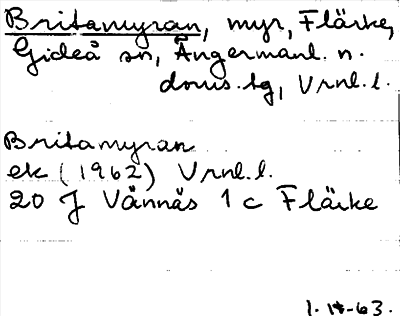 Britamyran, myr, Flärke,
Gideå sn, Ångermanl. n.
doms.tg, Vrnl.l.
Britamyran
ek (1962) Vrnl.l.
20 J Vännäs 1 c Flärke